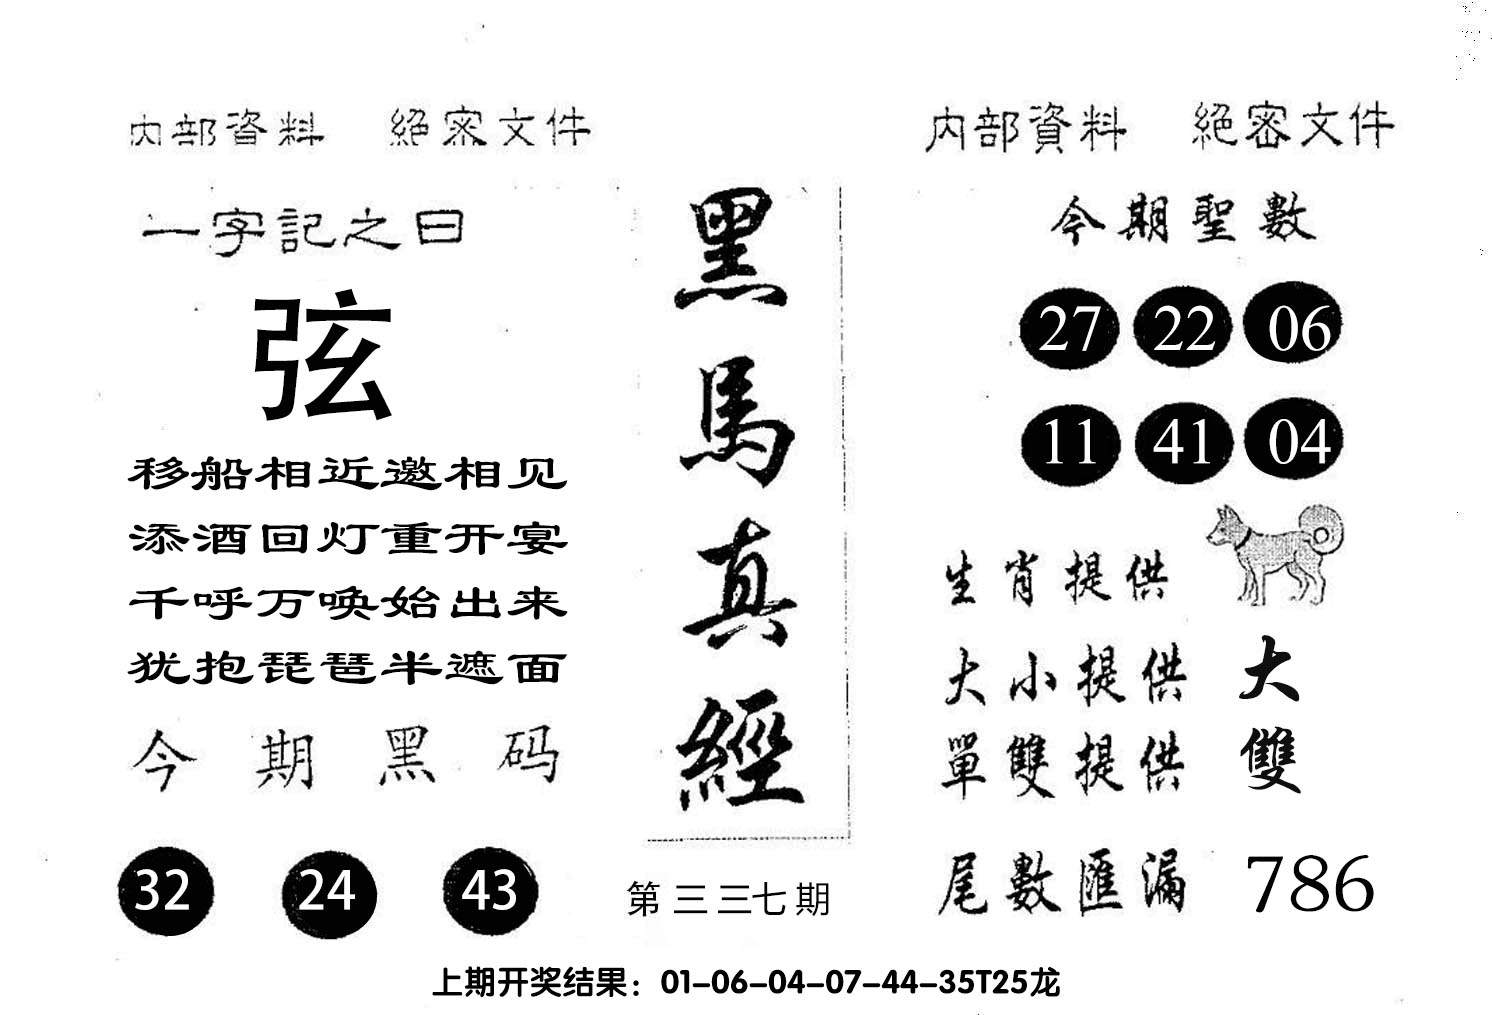 内部資料 絕密文件
一字記之曰
弦
移船相近邀相见
添酒回灯重开宴
千呼万唤始出来
犹抱琵琶半遮面
今期黑码
32 24 43
黑馬真經
第三三七期
内部資料 絕密文件
今期聖數
27 22 06
11 41 04
生肖提供
大小提供 大
單雙提供 雙
尾數匯漏 786
上期开奖结果：01-06-04-07-44-35T25龙